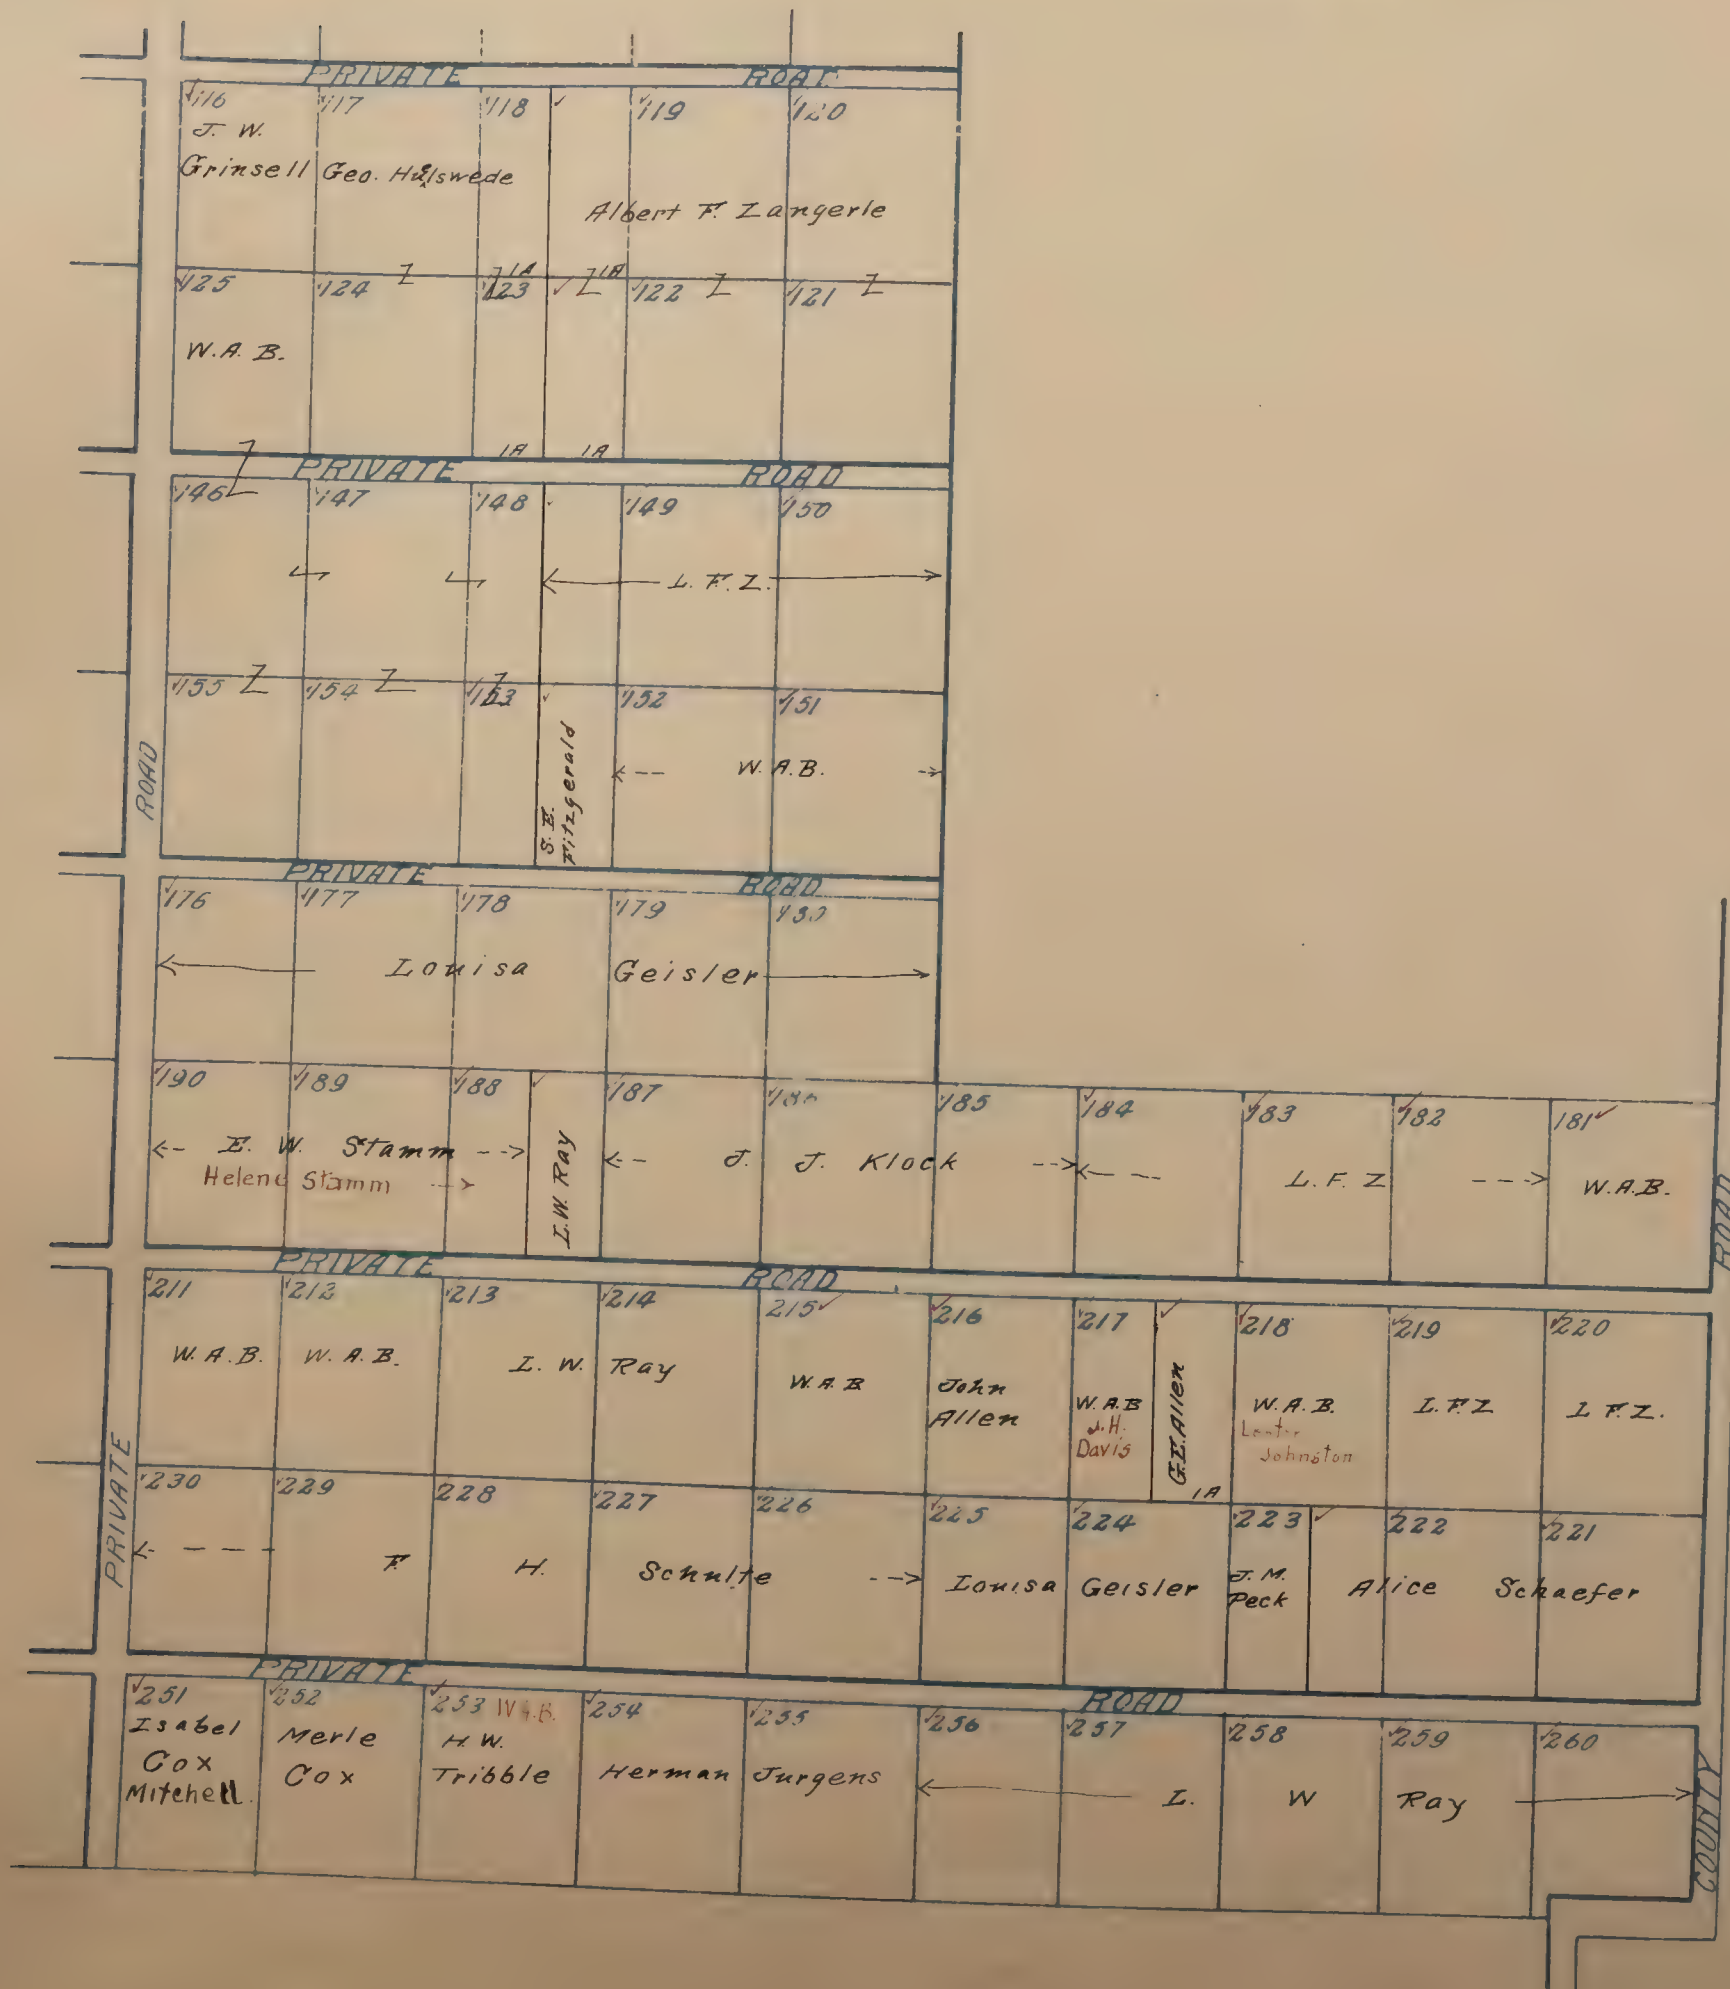 PRIVATE ROAD
116 117 118 119 120
J. W.
Grinsell Geo. Hülswede
Albert F. Zangerle
1A 1A
125 124 123 122 121
W.A.B.
1A 1A
PRIVATE ROAD
146 147 148 149 150
L.F.Z.
155 154 153 152 151
S.E.
Fitzgerald
W.A.B.
ROAD
PRIVATE ROAD
176 177 178 179 180
Louisa Geisler
190 189 188 187 186 185 184 183 182 181
E. W. Stamm
Helene Stamm
L.W. Ray
J. J. Klock
L.F.Z
W.A.B.
ROAD
PRIVATE ROAD
211 212 213 214 215 216 217 218 219 220
W.A.B. W.A.B. L. W. Ray W.A.B
John
Allen
W.A.B
J.H.
Davis
G.E. Allen
1A
W.A.B.
Johnston
L.F.Z L.F.Z.
PRIVATE
230 229 228 227 226 225 224 223 222 221
F. H. Schulte
Louisa Geisler
J. M.
Peck
Alice Schaefer
PRIVATE ROAD
251 252 253 W.A.B. 254 255 256 257 258 259 260
Isabel
Cox
Mitchell.
Merle
Cox
H. W.
Tribble
Herman Jurgens
L. W Ray
COUNTY